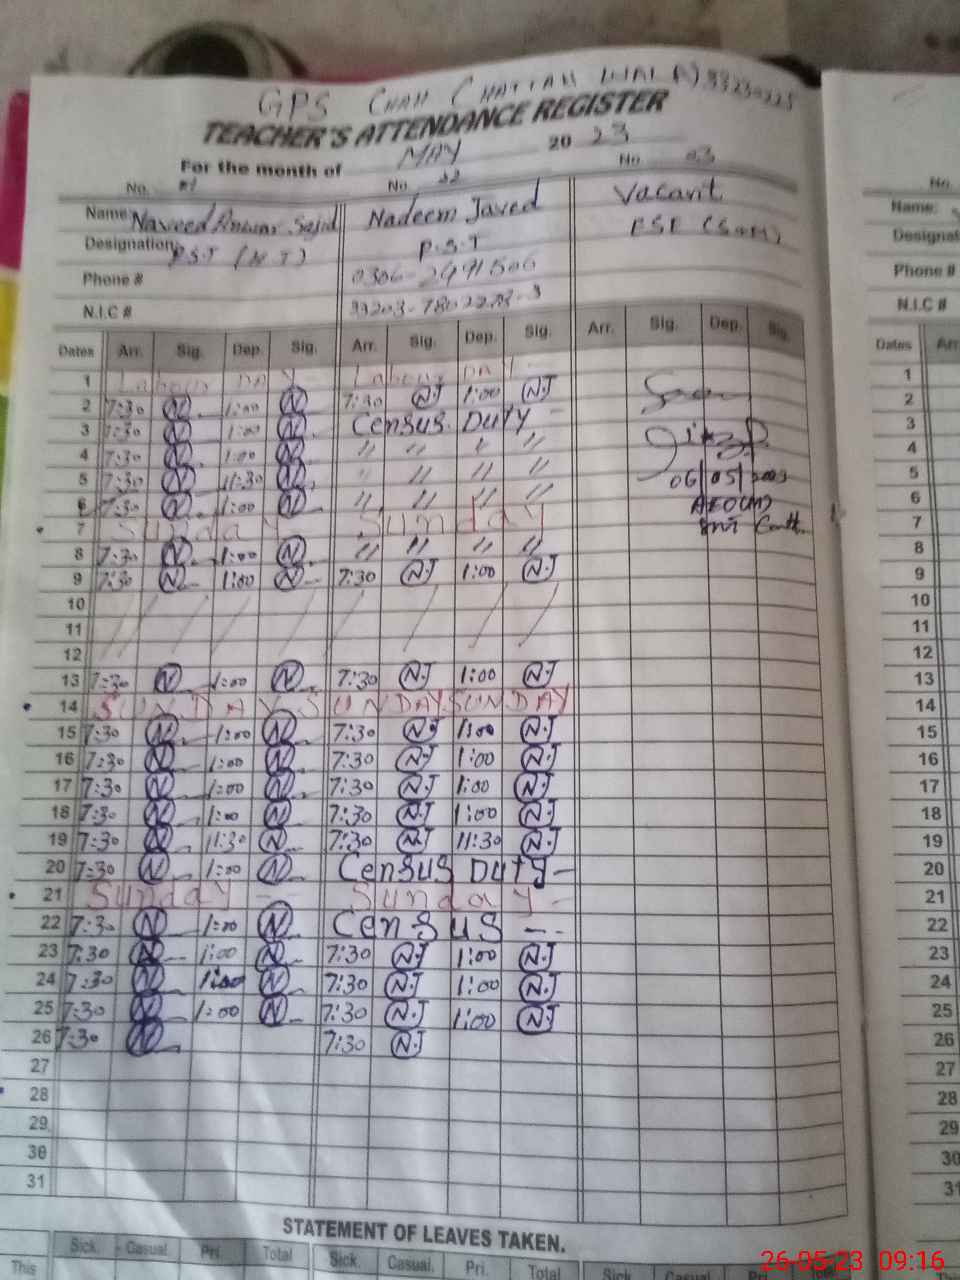 GPS CHAH CHATTAN WALA 33230225
TEACHER'S ATTENDANCE REGISTER
For the month of MAY 2023
No. No. No. 03
Name: Naveed Anwar Sajid Nadeem Javed Vacant
Designation: P.S.T (N.T) P.S.T
Phone # 0306-2491506
N.I.C #
Dates Arr. Sig. Dep. Sig. Arr. Sig. Dep. Sig. Arr. Sig. Dep. Sig.
1 Labour DAY Labour DAY
2 7:30 N 1:00 N 7:30 N.J 1:00 N.J
3 7:30 N 1:00 N Census Duty
4 7:30 N 1:00 N " " " "
5 7:30 N 11:30 N " " " "
6 7:30 N 1:00 N " " " "
7 Sunday Sunday
8 7:30 N 1:00 N " " " "
9 7:30 N 1:00 N 7:30 N.J 1:00 N.J
10
11
12
13 7:30 N 1:00 N 7:30 N.J 1:00 N.J
14 SUNDAY SUNDAY SUNDAY
15 7:30 N 1:00 N 7:30 N.J 1:00 N.J
16 7:30 N 1:00 N 7:30 N.J 1:00 N.J
17 7:30 N 1:00 N 7:30 N.J 1:00 N.J
18 7:30 N 1:00 N 7:30 N.J 1:00 N.J
19 7:30 N 11:30 N 7:30 N.J 11:30 N.J
20 7:30 N 1:00 N Census Duty
21 Sunday Sunday
22 7:30 N 1:00 N Census
23 7:30 N 1:00 N 7:30 N.J 1:00 N.J
24 7:30 N 1:00 N 7:30 N.J 1:00 N.J
25 7:30 N 1:00 N 7:30 N.J 1:00 N.J
26 7:30 N 7:30 N.J
27
28
29
30
31
STATEMENT OF LEAVES TAKEN.
Sick. Casual. Pri. Total Sick. Casual. Pri. Total Sick Casual. Pri.
This
No.
Name:
Designat
Phone #
N.I.C #
Dates Arr
1
2
3
4
5
6
7
8
9
10
11
12
13
14
15
16
17
18
19
20
21
22
23
24
25
26
27
28
29
30
31
26-05-23 09:16